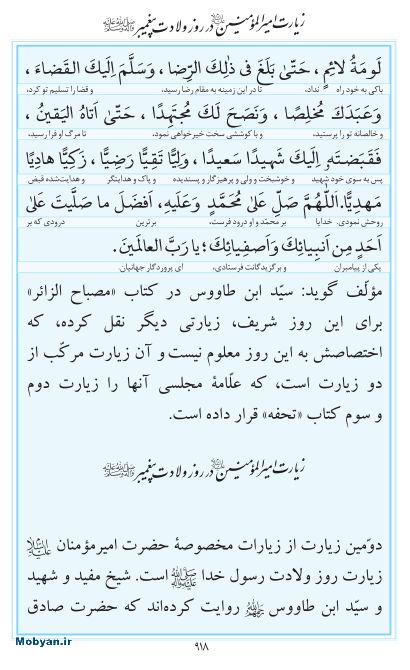 زیارت امیرالمؤمنین علیه‌السلام در روز ولادت پیغمبر صلی الله علیه و آله
لَومَةُ لائِمٍ ، حَتّىٰ بَلَغَ فى ذٰلِكَ الرِّضا ، وَسَلَّمَ اِلَيكَ القَضاءَ ،
باکی به خود راه نداد، تا در این زمینه به مقام رضا رسید، و قضا را تسلیم تو کرد،
وَعَبَدَكَ مُخلِصًا ، وَنَصَحَ لَكَ مُجتَهِدًا ، حَتّىٰ اَتاهُ اليَقينُ ،
و خالصانه تو را پرستید، و با کوششی سخت خیرخواهی نمود، تا مرگ او فرا رسید،
فَقَبَضتَهٗ اِلَيكَ شَهيدًا سَعيدًا ، وَلِيًّا تَقِيًّا رَضِيًّا ، زَكِيًّا هادِيًا
پس به سوی خود شهید و خوشبخت و ولی و پرهیزگار و پسندیده و پاک و هدایتگر و هدایت‌شده قبض
مَهدِيًّا. اَللّٰهُمَّ صَلِّ عَلىٰ مُحَمَّدٍ وَعَلَيهِ، اَفضَلَ ما صَلَّيتَ عَلىٰ
روحش نمودی. خدایا بر محمّد و او درود فرست، برترین درودی که بر
اَحَدٍ مِن اَنبِيائِكَ وَاَصفِيائِكَ ؛ يا رَبَّ العالَمينَ.
یکی از پیامبران و برگزیدگانت فرستادی، ای پروردگار جهانیان.
مؤلّف گوید: سیّد ابن طاووس در کتاب «مصباح الزائر»
برای این روز شریف، زیارتی دیگر نقل کرده، که
اختصاصش به این روز معلوم نیست و آن زیارت مرکّب از
دو زیارت است، که علّامهٔ مجلسی آنها را زیارت دوم
و سوم کتاب «تحفه» قرار داده است.
زیارت امیرالمؤمنین علیه‌السلام در روز ولادت پیغمبر صلی الله علیه و آله
دوّمین زیارت از زیارات مخصوصهٔ حضرت امیرمؤمنان علیه‌السلام
زیارت روز ولادت رسول خدا صلی الله علیه و آله است. شیخ مفید و شهید
و سیّد ابن طاووس رحمهم‌الله روایت کرده‌اند که حضرت صادق
۹۱۸
Mobyan.ir